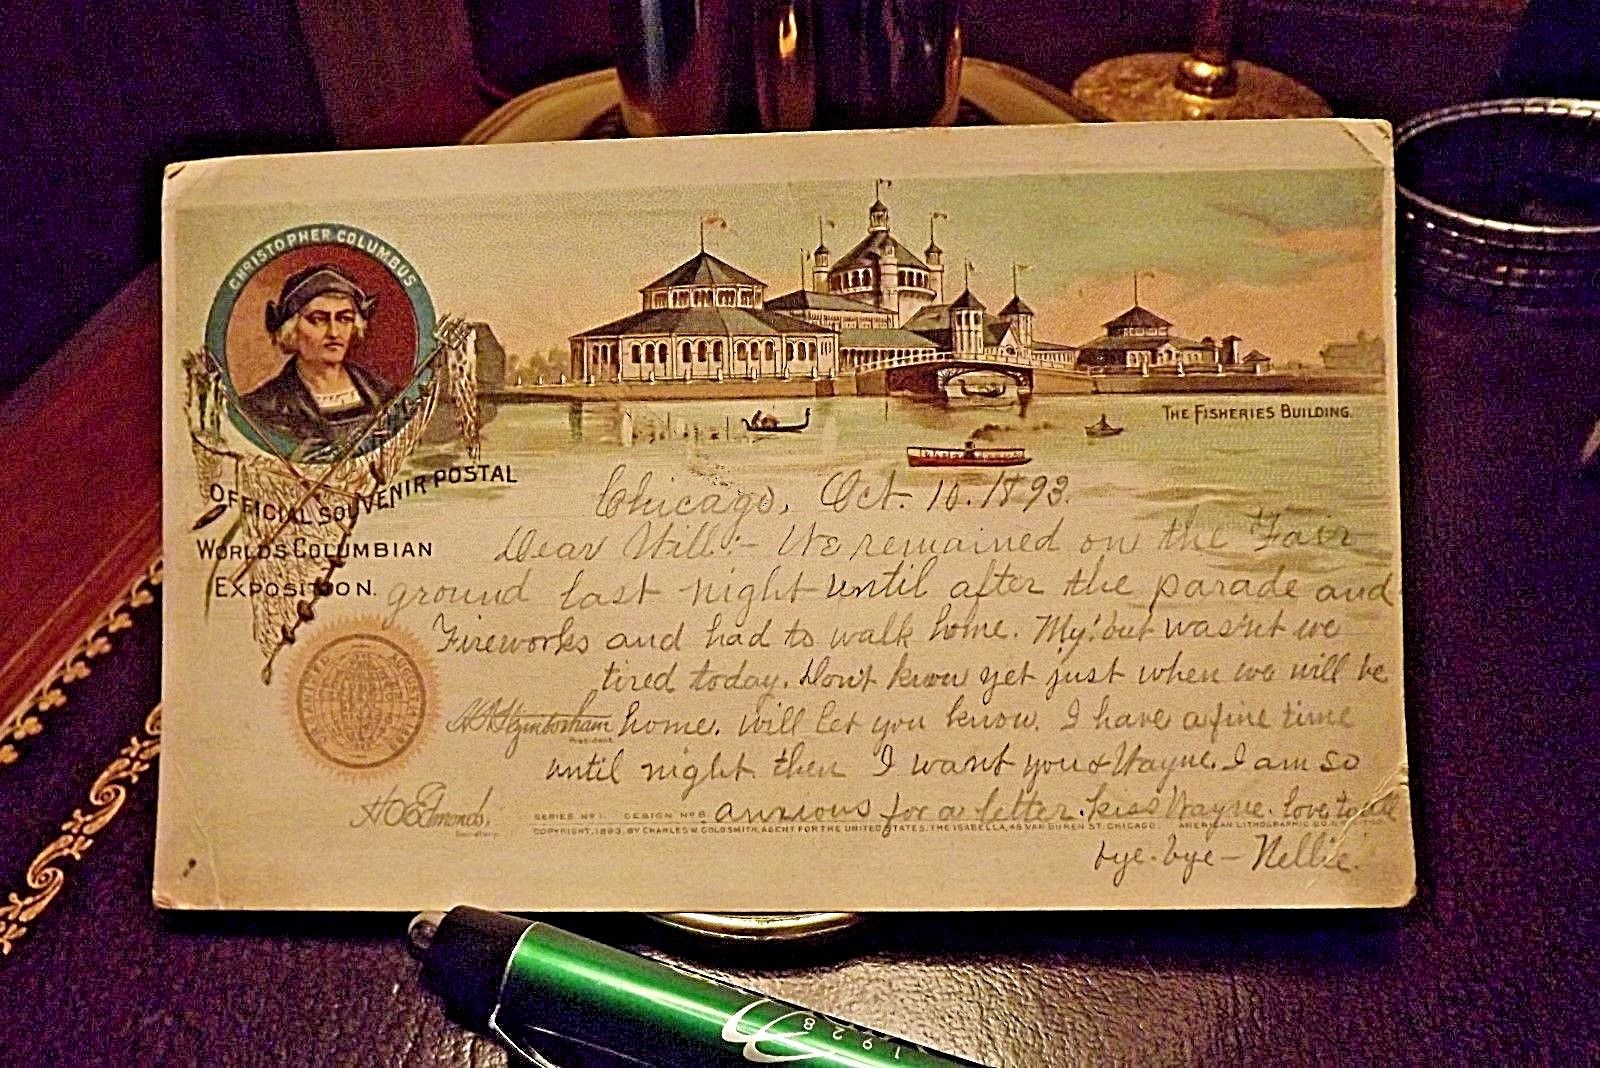 CHRISTOPHER COLUMBUS
THE FISHERIES BUILDING.
OFFICIAL SOUVENIR POSTAL
WORLDS COLUMBIAN
EXPOSITION.
Chicago, Oct. 10. 1893.
Dear Will:- We remained on the Fair
ground last night until after the parade and
Fireworks and had to walk home. My! but was'nt we
tired today. Don't know yet just when we will be
home. will let you know. I have a fine time
until night then I want you & Wayne. I am so
anxious for a letter. kiss Wayne. love to all
bye-bye - Nellie.
President.
H O Edmonds,
Secretary.
SERIES No 1. DESIGN No 8.
COPYRIGHT, 1893, BY CHARLES W. GOLDSMITH, AGENT FOR THE UNITED STATES, THE ISABELLA, 48 VAN BUREN ST. CHICAGO. AMERICAN LITHOGRAPHIC CO.
1928